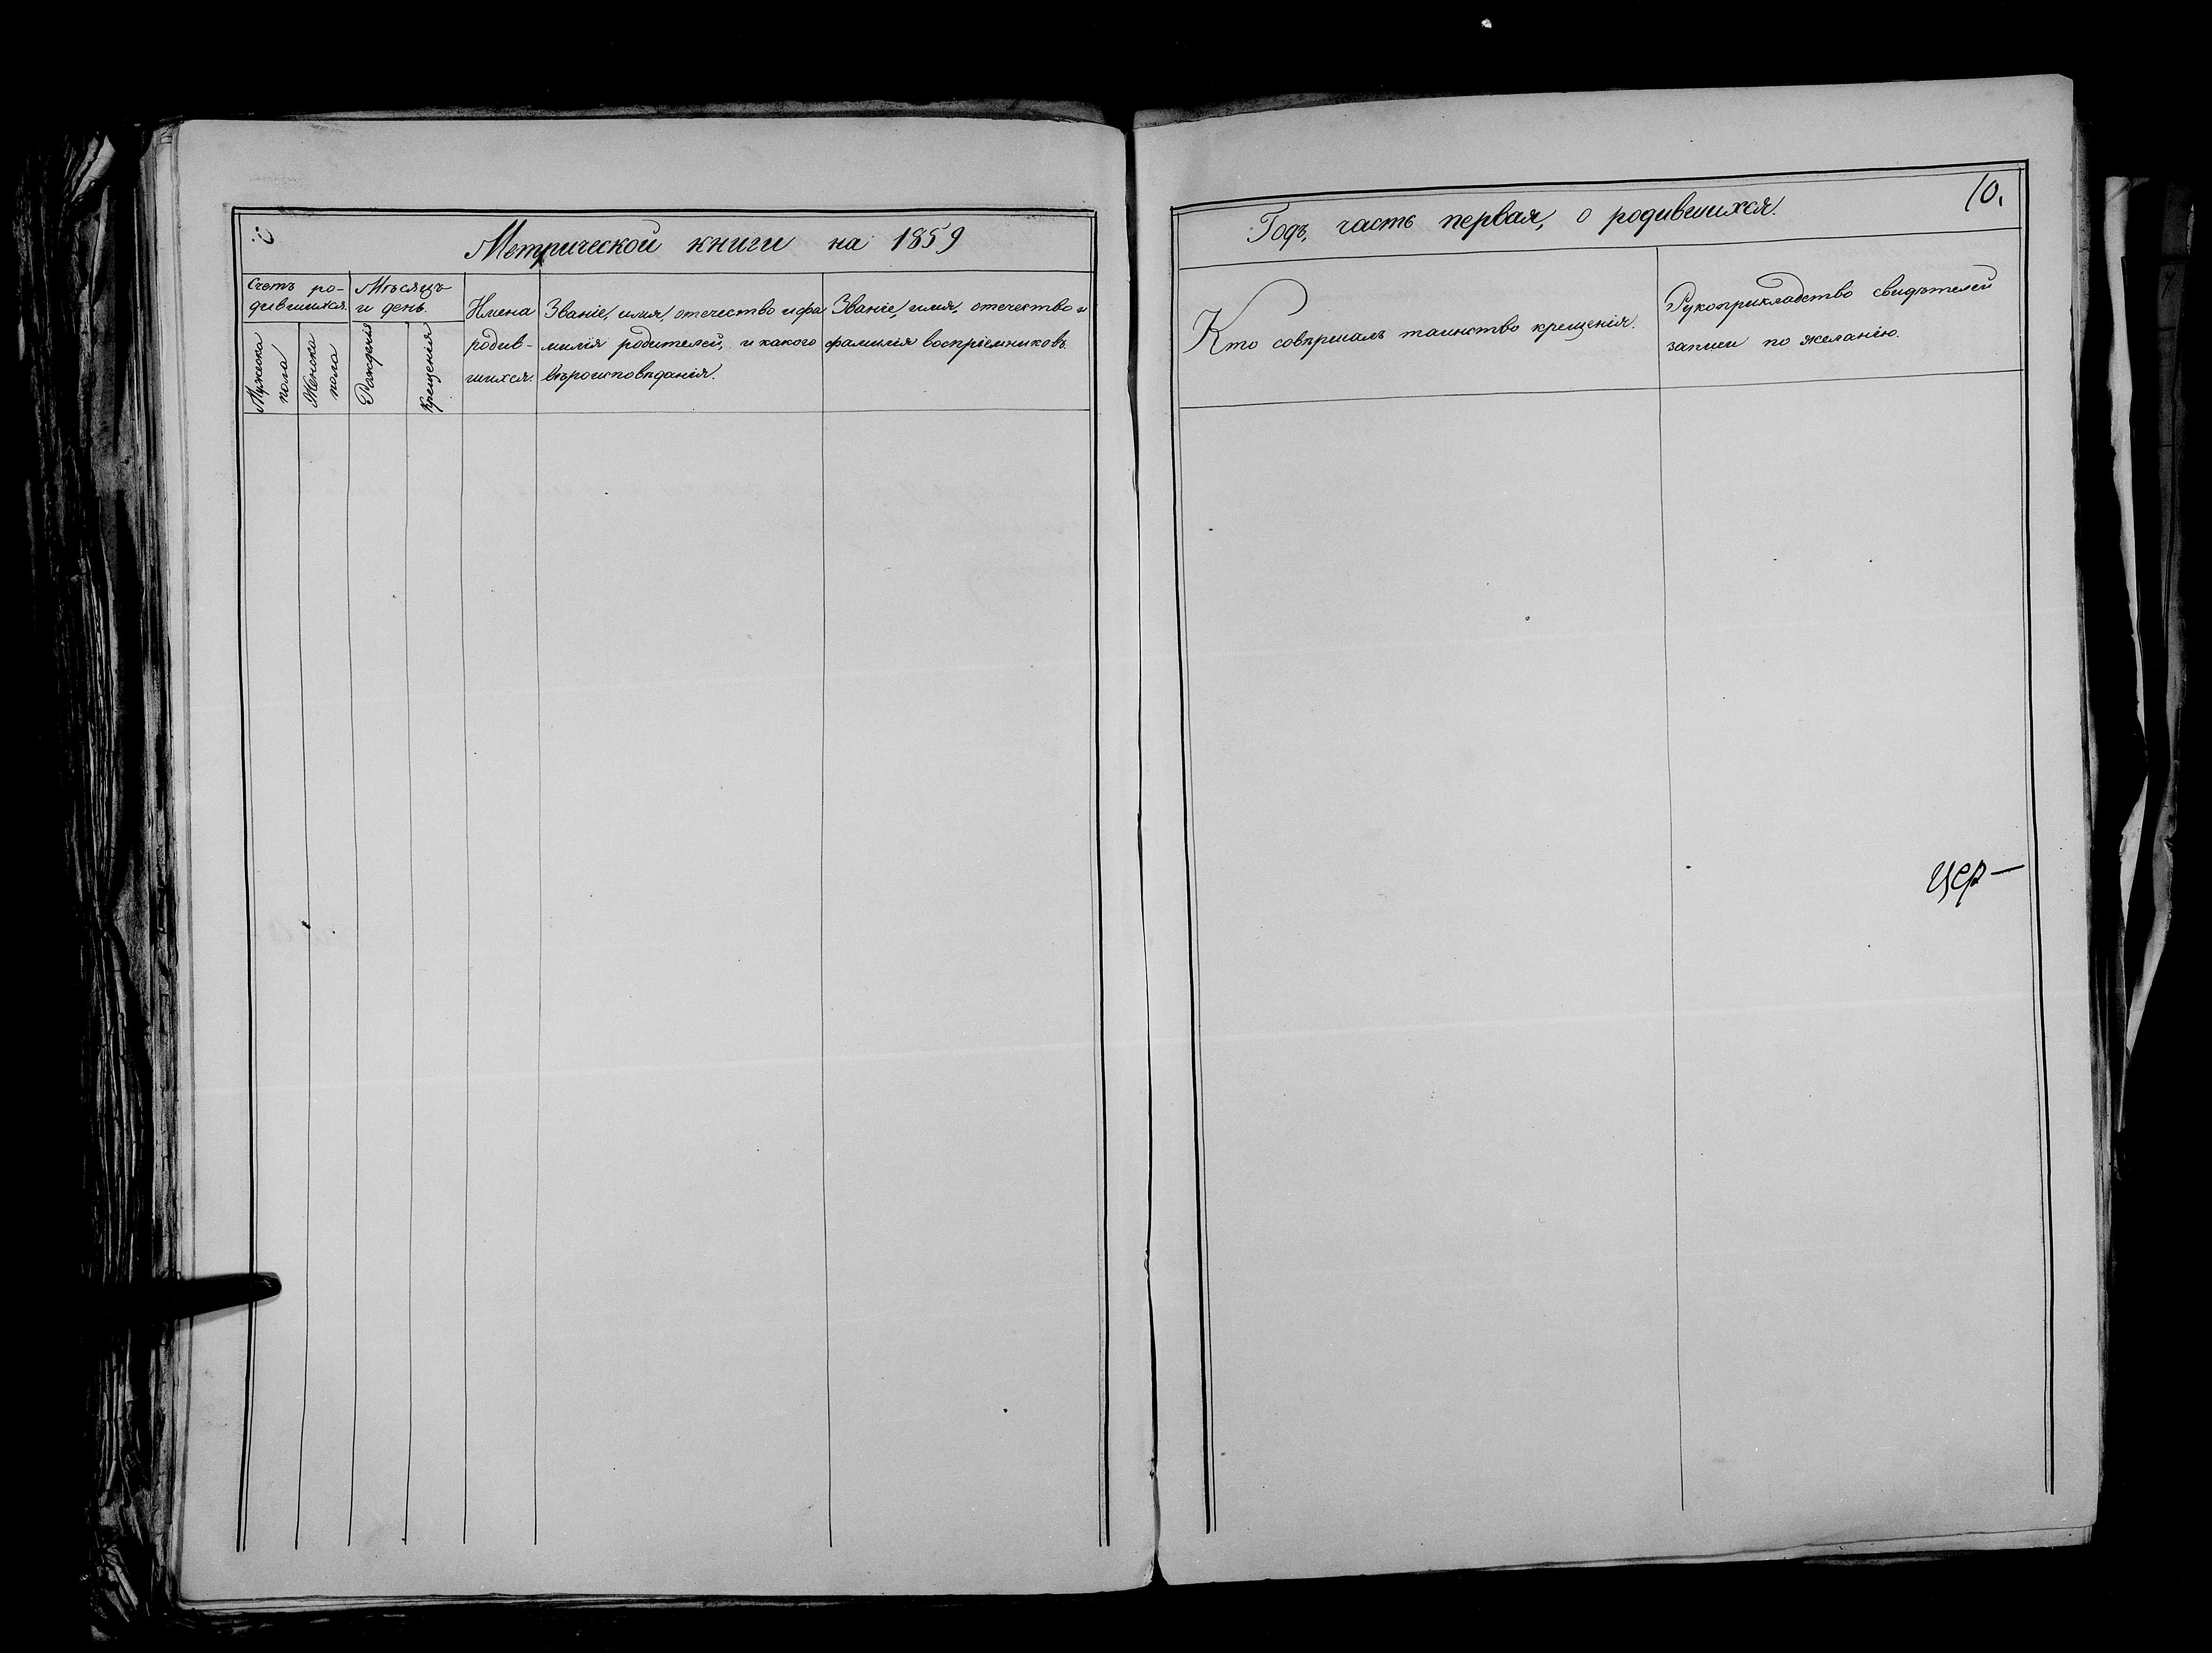 Метрической книги на 1859
Счетъ ро-
дившихся.
Мужеска
пола
Женска
пола
Мѣсяцъ
и день.
Рожденія
Крещенія
Имена
родив-
шихся.
Званіе, имя, отечество и фа
милія родителей, и какого
вѣроисповѣданія.
Званіе, имя, отечество и
фамилія воспріемниковъ
Годъ, часть первая, о родившихся.
10.
Кто совершалъ таинство крещенія.
Рукоприкладство свидѣтелей
записи по желанію.
цер—